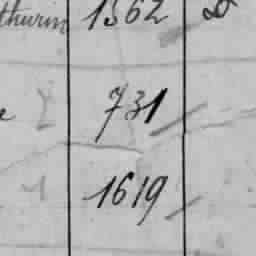 thurin 1362
731
1619